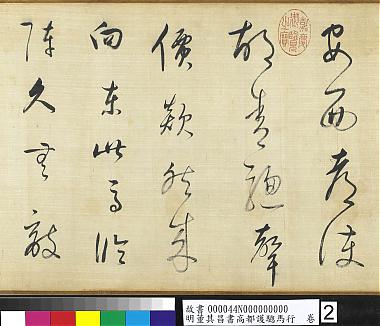 安西都護
胡青驄聲
價歘然來
向東此馬臨
陣久無敵
故書000044N000000000
明董其昌書高都護驄馬行 卷
2